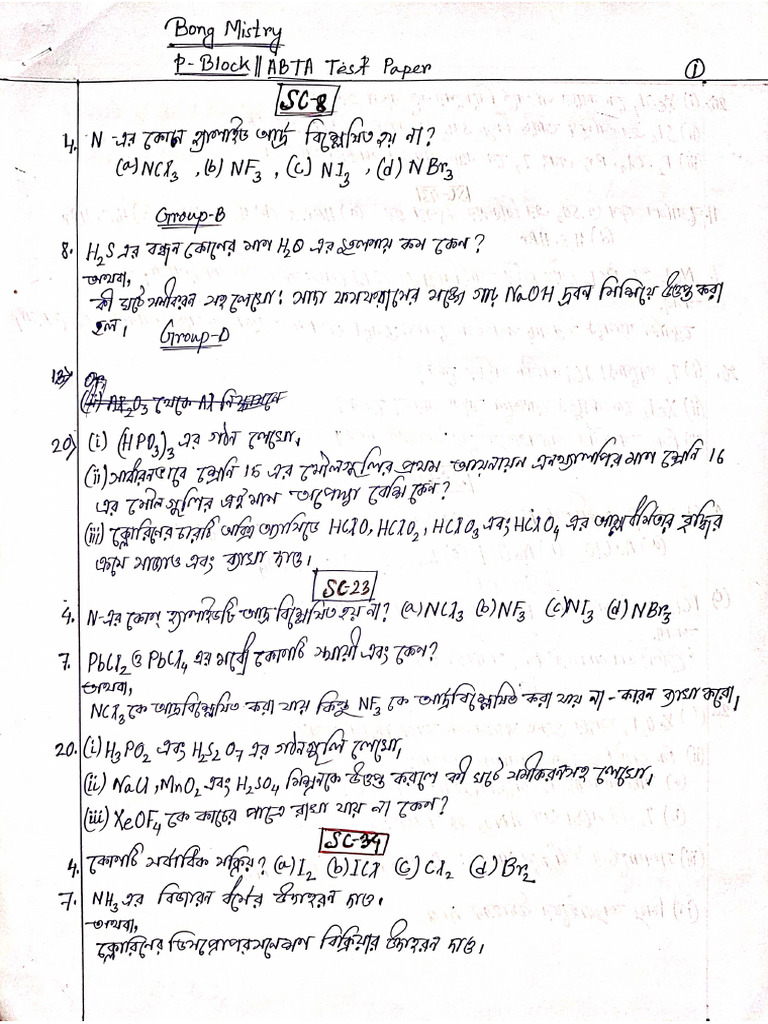 Bong Mistry
P-Block || ABTA Test Paper
①
SC-8
4. N-এর কোন হ্যালাইড আর্দ্র বিশ্লেষিত হয় না?
(a) NCl3 , (b) NF3 , (c) NI3 , (d) NBr3
Group-B
8. H2S এর বন্ধন কোণের মান H2O এর তুলনায় কম কেন?
অথবা,
কী ঘটে সমীকরণ সহ লেখো: সাদা ফসফরাসের সঙ্গে গাঢ় NaOH দ্রবন মিশিয়ে উত্তপ্ত করা
হল।
Group-D
20) (i) (HPO3)3 এর গঠন লেখো,
(ii) সাধারনভাবে শ্রেনি 15 এর মৌলগুলির প্রথম আয়নায়ন এনথ্যালপির মান শ্রেনি 16
এর মৌলগুলির এই মান অপেক্ষা বেশি কেন?
(iii) ক্লোরিনের চারটি অক্সি অ্যাসিড HClO, HClO2, HClO3 এবং HClO4 এর আম্লধর্মিতার বৃদ্ধির
ক্রমে সাজাও এবং ব্যাখা দাও।
SC-23
4. N-এর কোন্ হ্যালাইডটি আর্দ্রবিশ্লেষিত হয় না? (a) NCl3 (b) NF3 (c) NI3 (d) NBr3
7. PbCl2 ও PbCl4 এর মধ্যে কোনটি স্থায়ী এবং কেন?
অথবা,
NCl3 কে আর্দ্রবিশ্লেষিত করা যায় কিন্তু NF3 কে আর্দ্রবিশ্লেষিত করা যায় না - কারন ব্যাখা করো।
20. (i) H3PO2 এবং H2S2O7 এর গঠনগুলি লেখো,
(ii) NaCl, MnO2 এবং H2SO4 মিশ্রনকে উত্তপ্ত করলে কী ঘটে সমীকরণসহ লেখো,
(iii) XeOF4 কে কাচের পাত্রে রাখা যায় না কেন?
SC-34
4. কোনটি সর্বাধিক সক্রিয়? (a) I2 (b) ICl (c) Cl2 (d) Br2
7. NH3 এর বিজারন ধর্মের উদাহরন দাও।
অথবা,
ক্লোরিনের ডিসপ্রোপরসনেশন বিক্রিয়ার উদাহরন দাও।